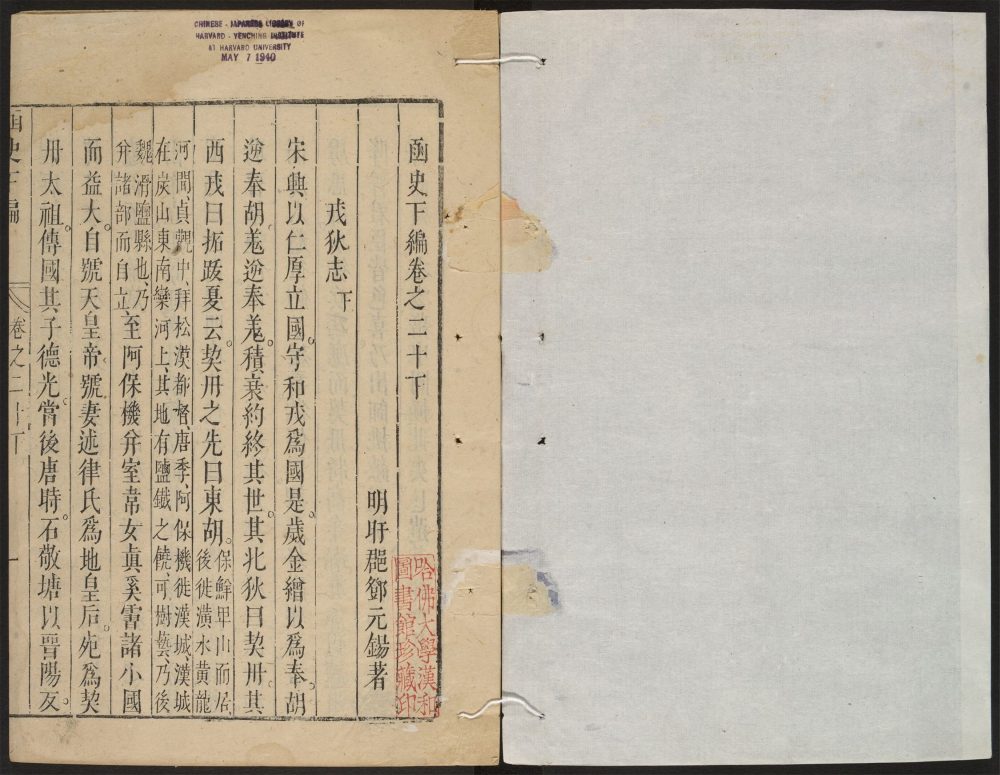 CHINESE - JAPANESE LIBRARY OF
HARVARD - YENCHING INSTITUTE
AT HARVARD UNIVERSITY
MAY 7 1940
函史下編卷之二十下
明盱郡鄧元錫著
戎狄志下
宋興以仁厚立國守和戎爲國是歲金繒以爲奉胡
逆奉胡羗逆奉羗積衰約終其世其北狄曰契丹其
西戎曰拓跋夏云契丹之先曰東胡
保鮮卑山而居
後徙潢水黃龍
河間貞觀中拜松漠都督唐季阿保機徙漢城漢城
在炭山東南欒河上其地有鹽鐵之饒可樹藝乃後
魏滑鹽縣也乃
并諸部而自立
至阿保機并室韋女眞奚霫諸小國
而益大自號天皇帝號妻述律氏爲地皇后宛爲契
丹太祖傳國其子德光當後唐時石敬塘以晉陽反
函史下編
卷之二十下
一
哈佛大學漢和
圖書館珍藏印